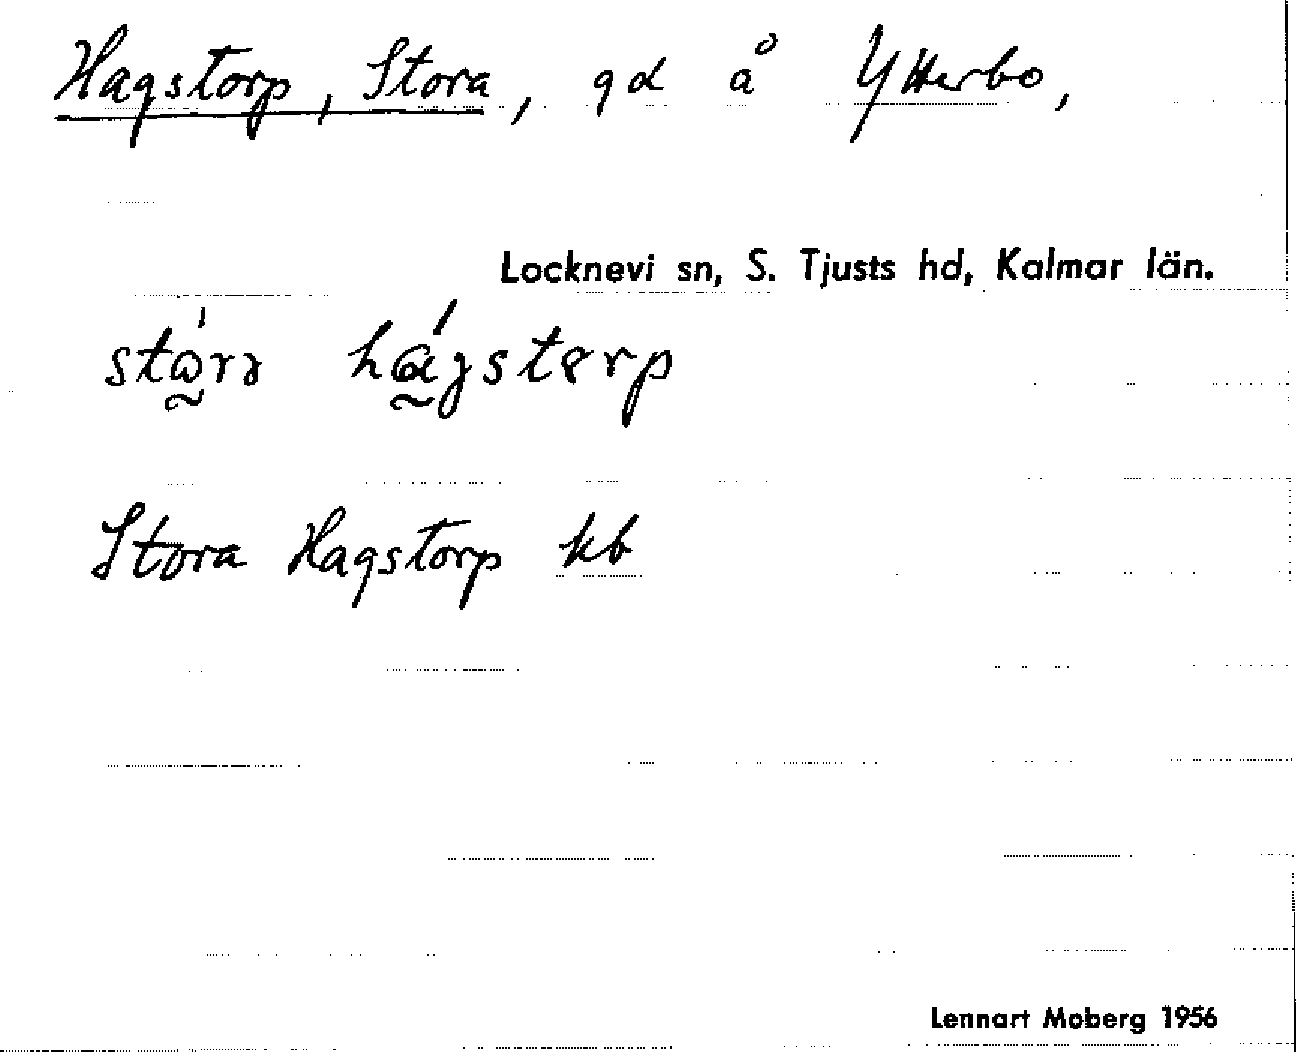 Hagstorp, Stora, gd å Ytterbo,
Locknevi sn, S. Tjusts hd, Kalmar län.
Stora Hagstorp kb
Lennart Moberg 1956